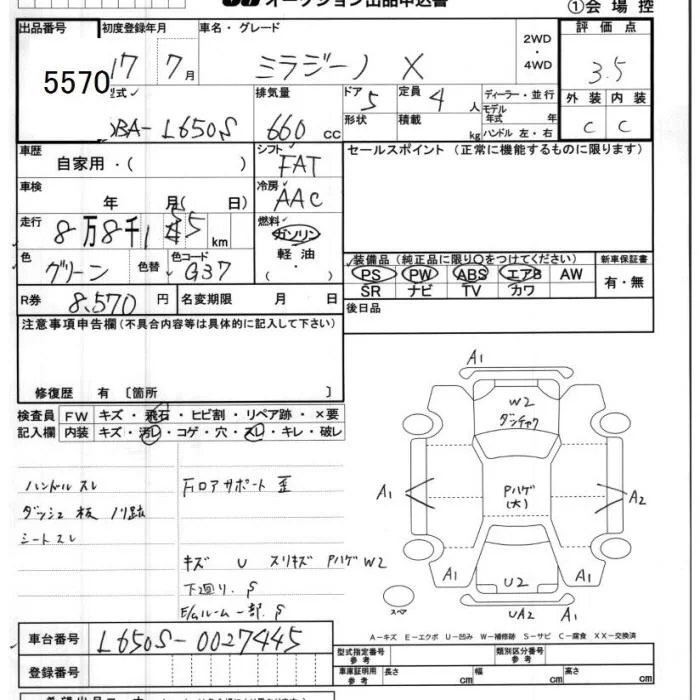 オークション出品申込書
①会場控
出品番号 初度登録年月 車名・グレード 評価点
5570 17 7月 ミラジーノ X 2WD・4WD 3.5
型式 排気量 ドア 5 定員 4人 ディーラー・並行 外装 内装
DBA-L650S 660cc 形状 積載 kg モデル年式 年 ハンドル 左・右 C C
車歴 シフト セールスポイント (正常に機能するものに限ります)
自家用・( ) FAT
車検 年 月( 日) 冷房 AAC
走行 8万8千1 5 km 燃料 ガソリン
軽油・( )
色 グリーン 色替 色コード G37
装備品(純正品に限り○をつけてください) 新車保証書
PS PW ABS エアB AW 有・無
SR ナビ TV カワ
R券 8,570円 名変期限 月 日 後日品
注意事項申告欄(不具合内容等は具体的に記入して下さい)
修復歴 有 〔箇所 〕
検査員 FW キズ・飛石・ヒビ割・リペア跡・×要
記入欄 内装 キズ・汚レ・コゲ・穴・スレ・キレ・破レ
ハンドルスレ
ダッシュ板 ノリ跡
シートスレ
Fロアサポート 歪
キズ U スリキズ Pハゲ W2
下廻り.S
E/gルーム一部.S
A1
W2
ダンチャク
A1 Pハゲ A2
(大)
A1 U2 A1
スペア UA2 A1
A-キズ E-エクボ U-凹み W-補修跡 S-サビ C-腐食 XX-交換済
車台番号 L650S-0027445
登録番号
型式指定番号 参考 類別区分番号 参考
車庫証明用 参考 長さ cm 幅 cm 高さ cm